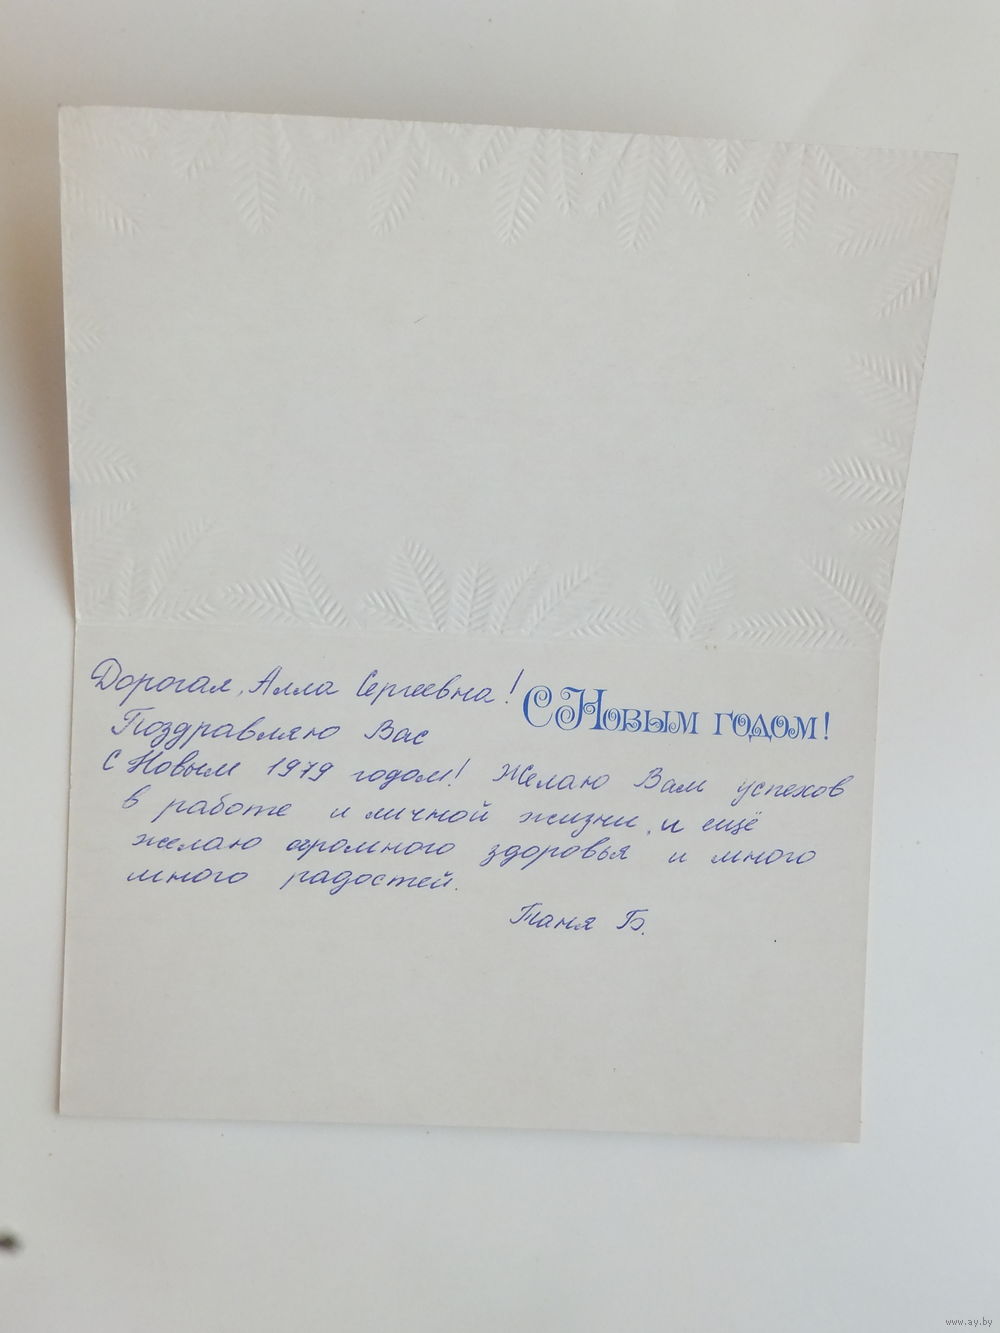 Дорогая, Алла Сергеевна!
С Новым годом!
Поздравляю Вас
С Новым 1979 годом! Желаю Вам успехов
в работе и личной жизни, и ещё
желаю огромного здоровья и много
много радостей.
Таня Б.
www.ay.by